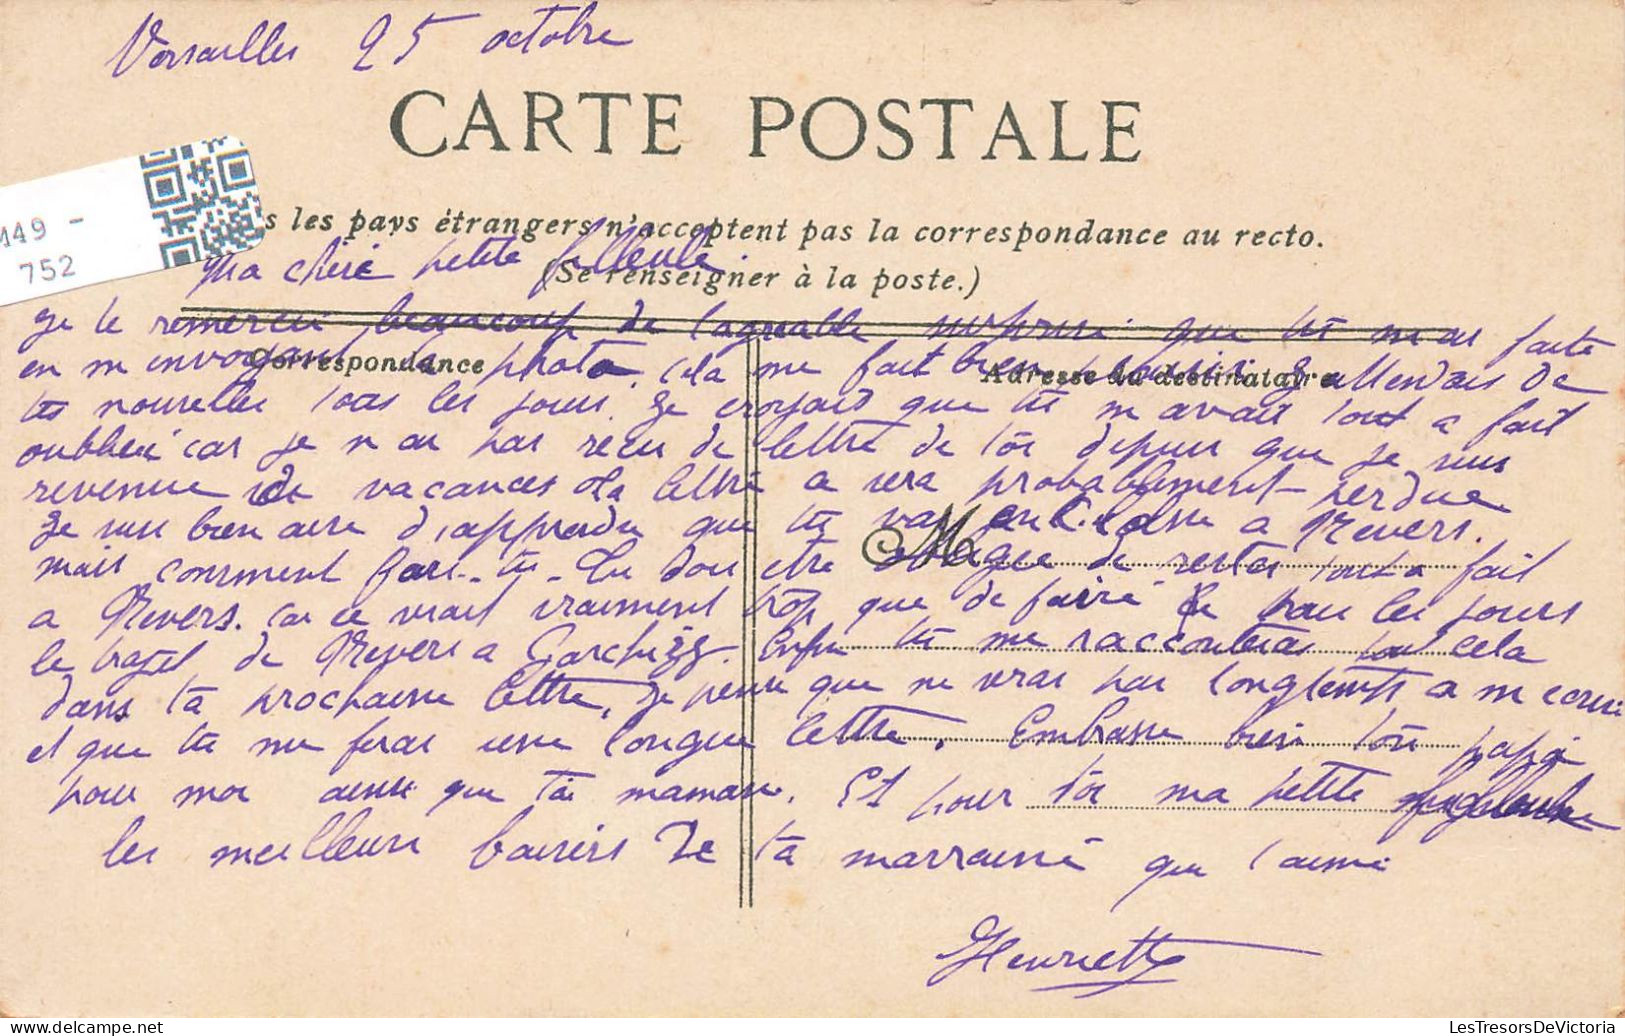 Versailles 25 octobre
CARTE POSTALE
149 -
752
s les pays étrangers n'acceptent pas la correspondance au recto.
(Se renseigner à la poste.)
Ma chère petite filleule.
Je te remercie beaucoup de l'agréable surprise que tu m'as faite
Correspondance
Adresse du destinataire
en m'envoyant ta photo, cela me fait bien plaisir J'attendais de
tes nouvelles tous les jours. Je croyais que tu m'avais tout a fait
oubliée car je n'ai pas reçu de lettre de toi depuis que je suis
revenue de vacances ta lettre a sera probablement perdue
Je suis bien aise d'apprendre que tu vas en classe a Nevers.
M
mais comment fais-tu. Tu dois etre obligée de rester tout a fait
a Nevers. car ce serait vraiment trop que de faire tous les jours
le trajet de Nevers a Garchizy. Enfin tu me raconteras tout cela
dans ta prochaine lettre, je pense que ne seras pas longtemps a m'ecrire
et que tu me feras une longue lettre. Embrasse bien ton papa
pour moi ainsi que ta maman. Et pour toi ma petite filleule
les meilleurs baisers de ta marraine qui t'aime
Henriette
LesTresorsDeVictoria